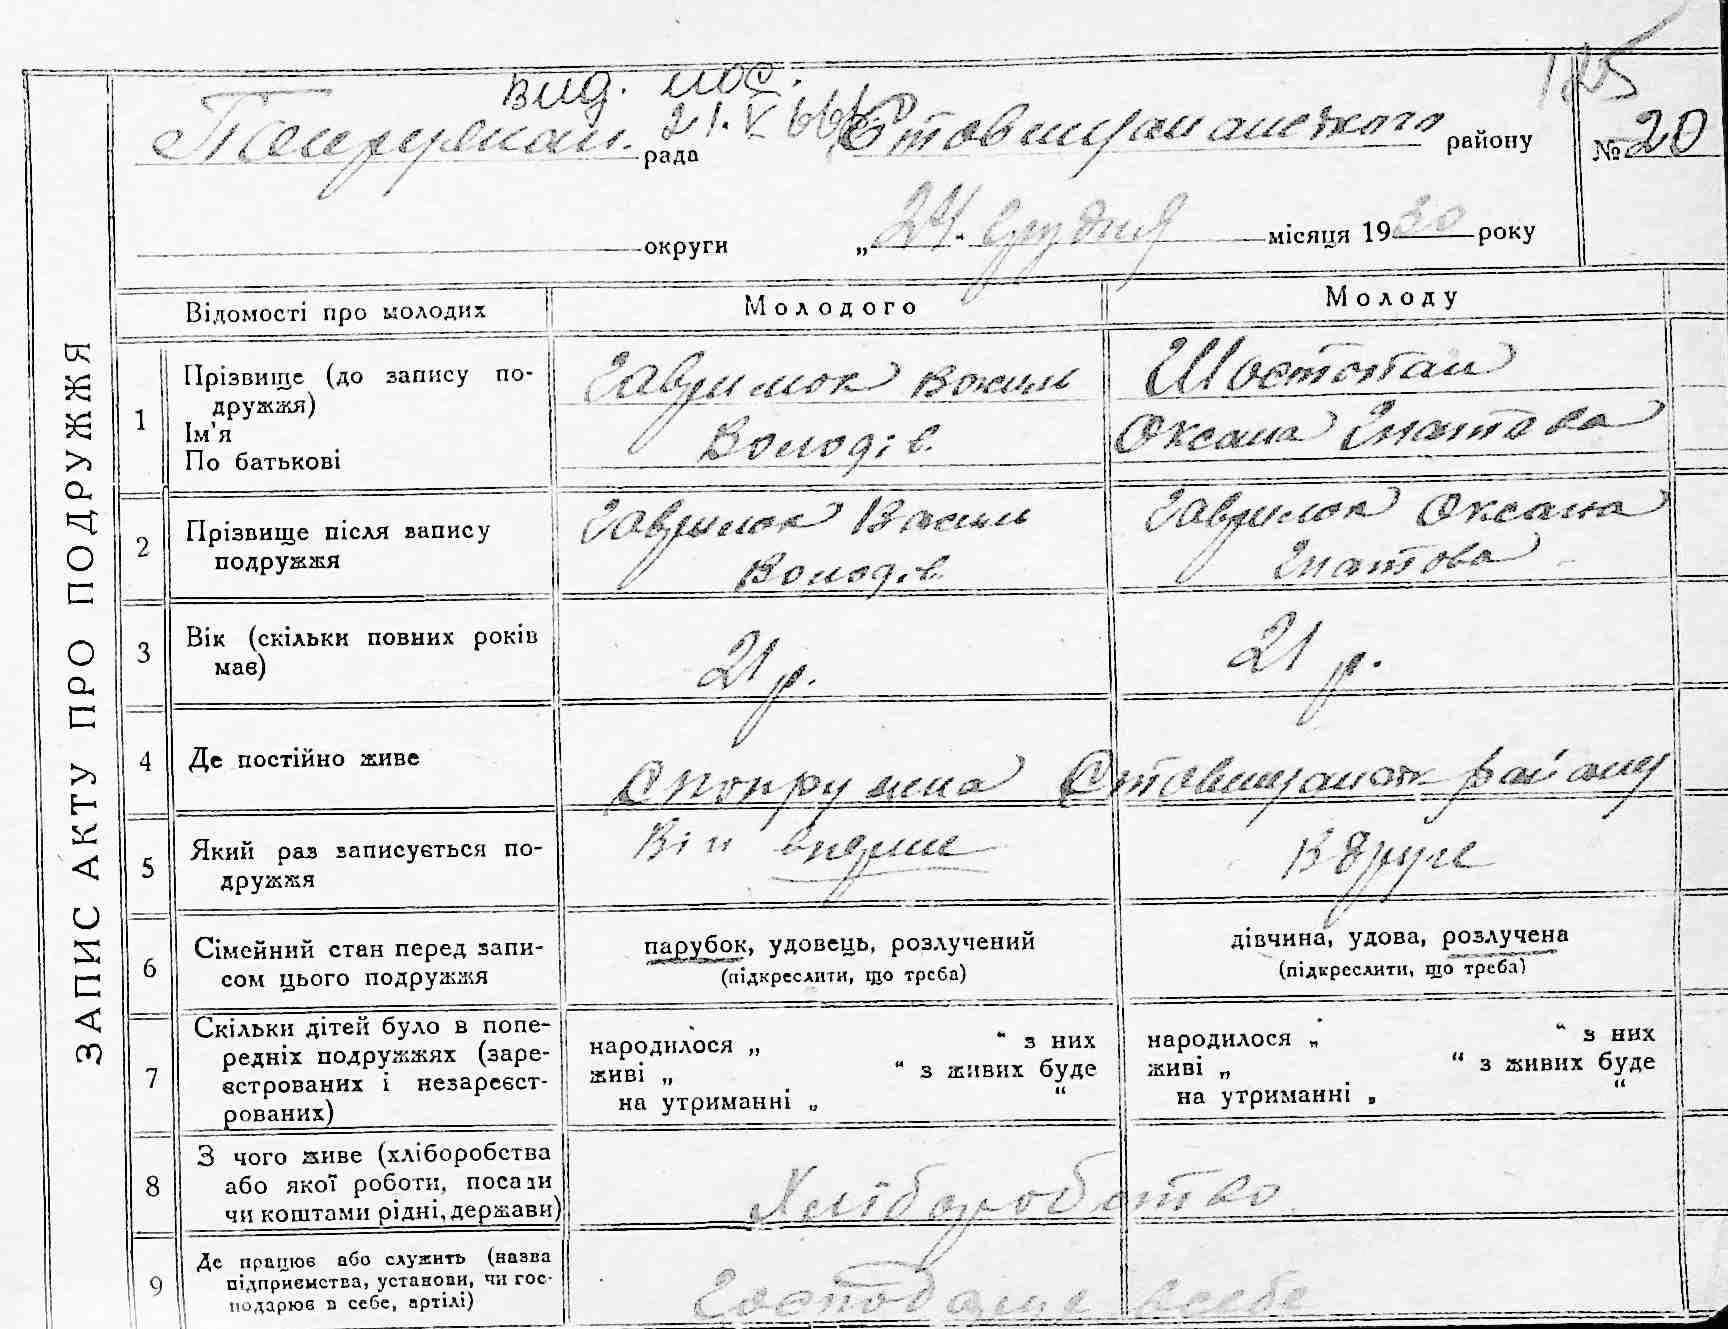 125
вид. пос.
21.V 66
рада Ставищанського району № 20
округи „24“ грудня місяця 1930 року
ЗАПИС АКТУ ПРО ПОДРУЖЖЯ
Відомості про молодих Молодого Молоду
1 Прізвище (до запису по-
дружжя)
Ім'я
По батькові
Гаврилюк Василь
Володів.
Оксана Гнатова
2 Прізвище після запису
подружжя
Гаврилюк Василь
Володів.
Гаврилюк Оксана
Гнатова
3 Вік (скільки повних років
має)
21 р. 21 р.
4 Де постійно живе
с Попружна Ставищанськ району
5 Який раз записується по-
дружжя
Він вперше вдруге
6 Сімейний стан перед запи-
сом цього подружжя
парубок, удовець, розлучений
(підкреслити, що треба)
дівчина, удова, розлучена
(підкреслити, що треба)
7 Скільки дітей було в попе-
редніх подружжях (заре-
єстрованих і незареєст-
рованих)
народилося „ “ з них
живі „ “ з живих буде
на утриманні „ “
народилося „ “ з них
живі „ “ з живих буде
на утриманні „ “
8 З чого живе (хліборобства
або якої роботи, посади
чи коштами рідні, держави)
Хліборобство
9 Де працює або служить (назва
підприємства, установи, чи гос-
подарює в себе, артілі)
Господарює в себе